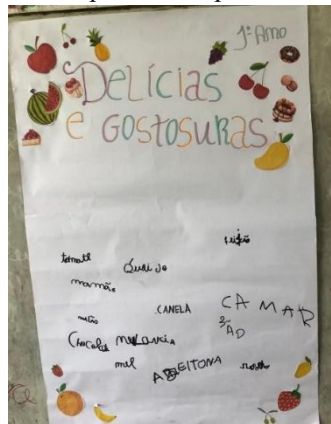 1º Ano
DELÍCIAS
E GOSTOSURAS
feijão
tomate
Queijo
mamão
CANELA
CAMAR
ÃO
melão
Chocolate melancia
mel
AZEITONA